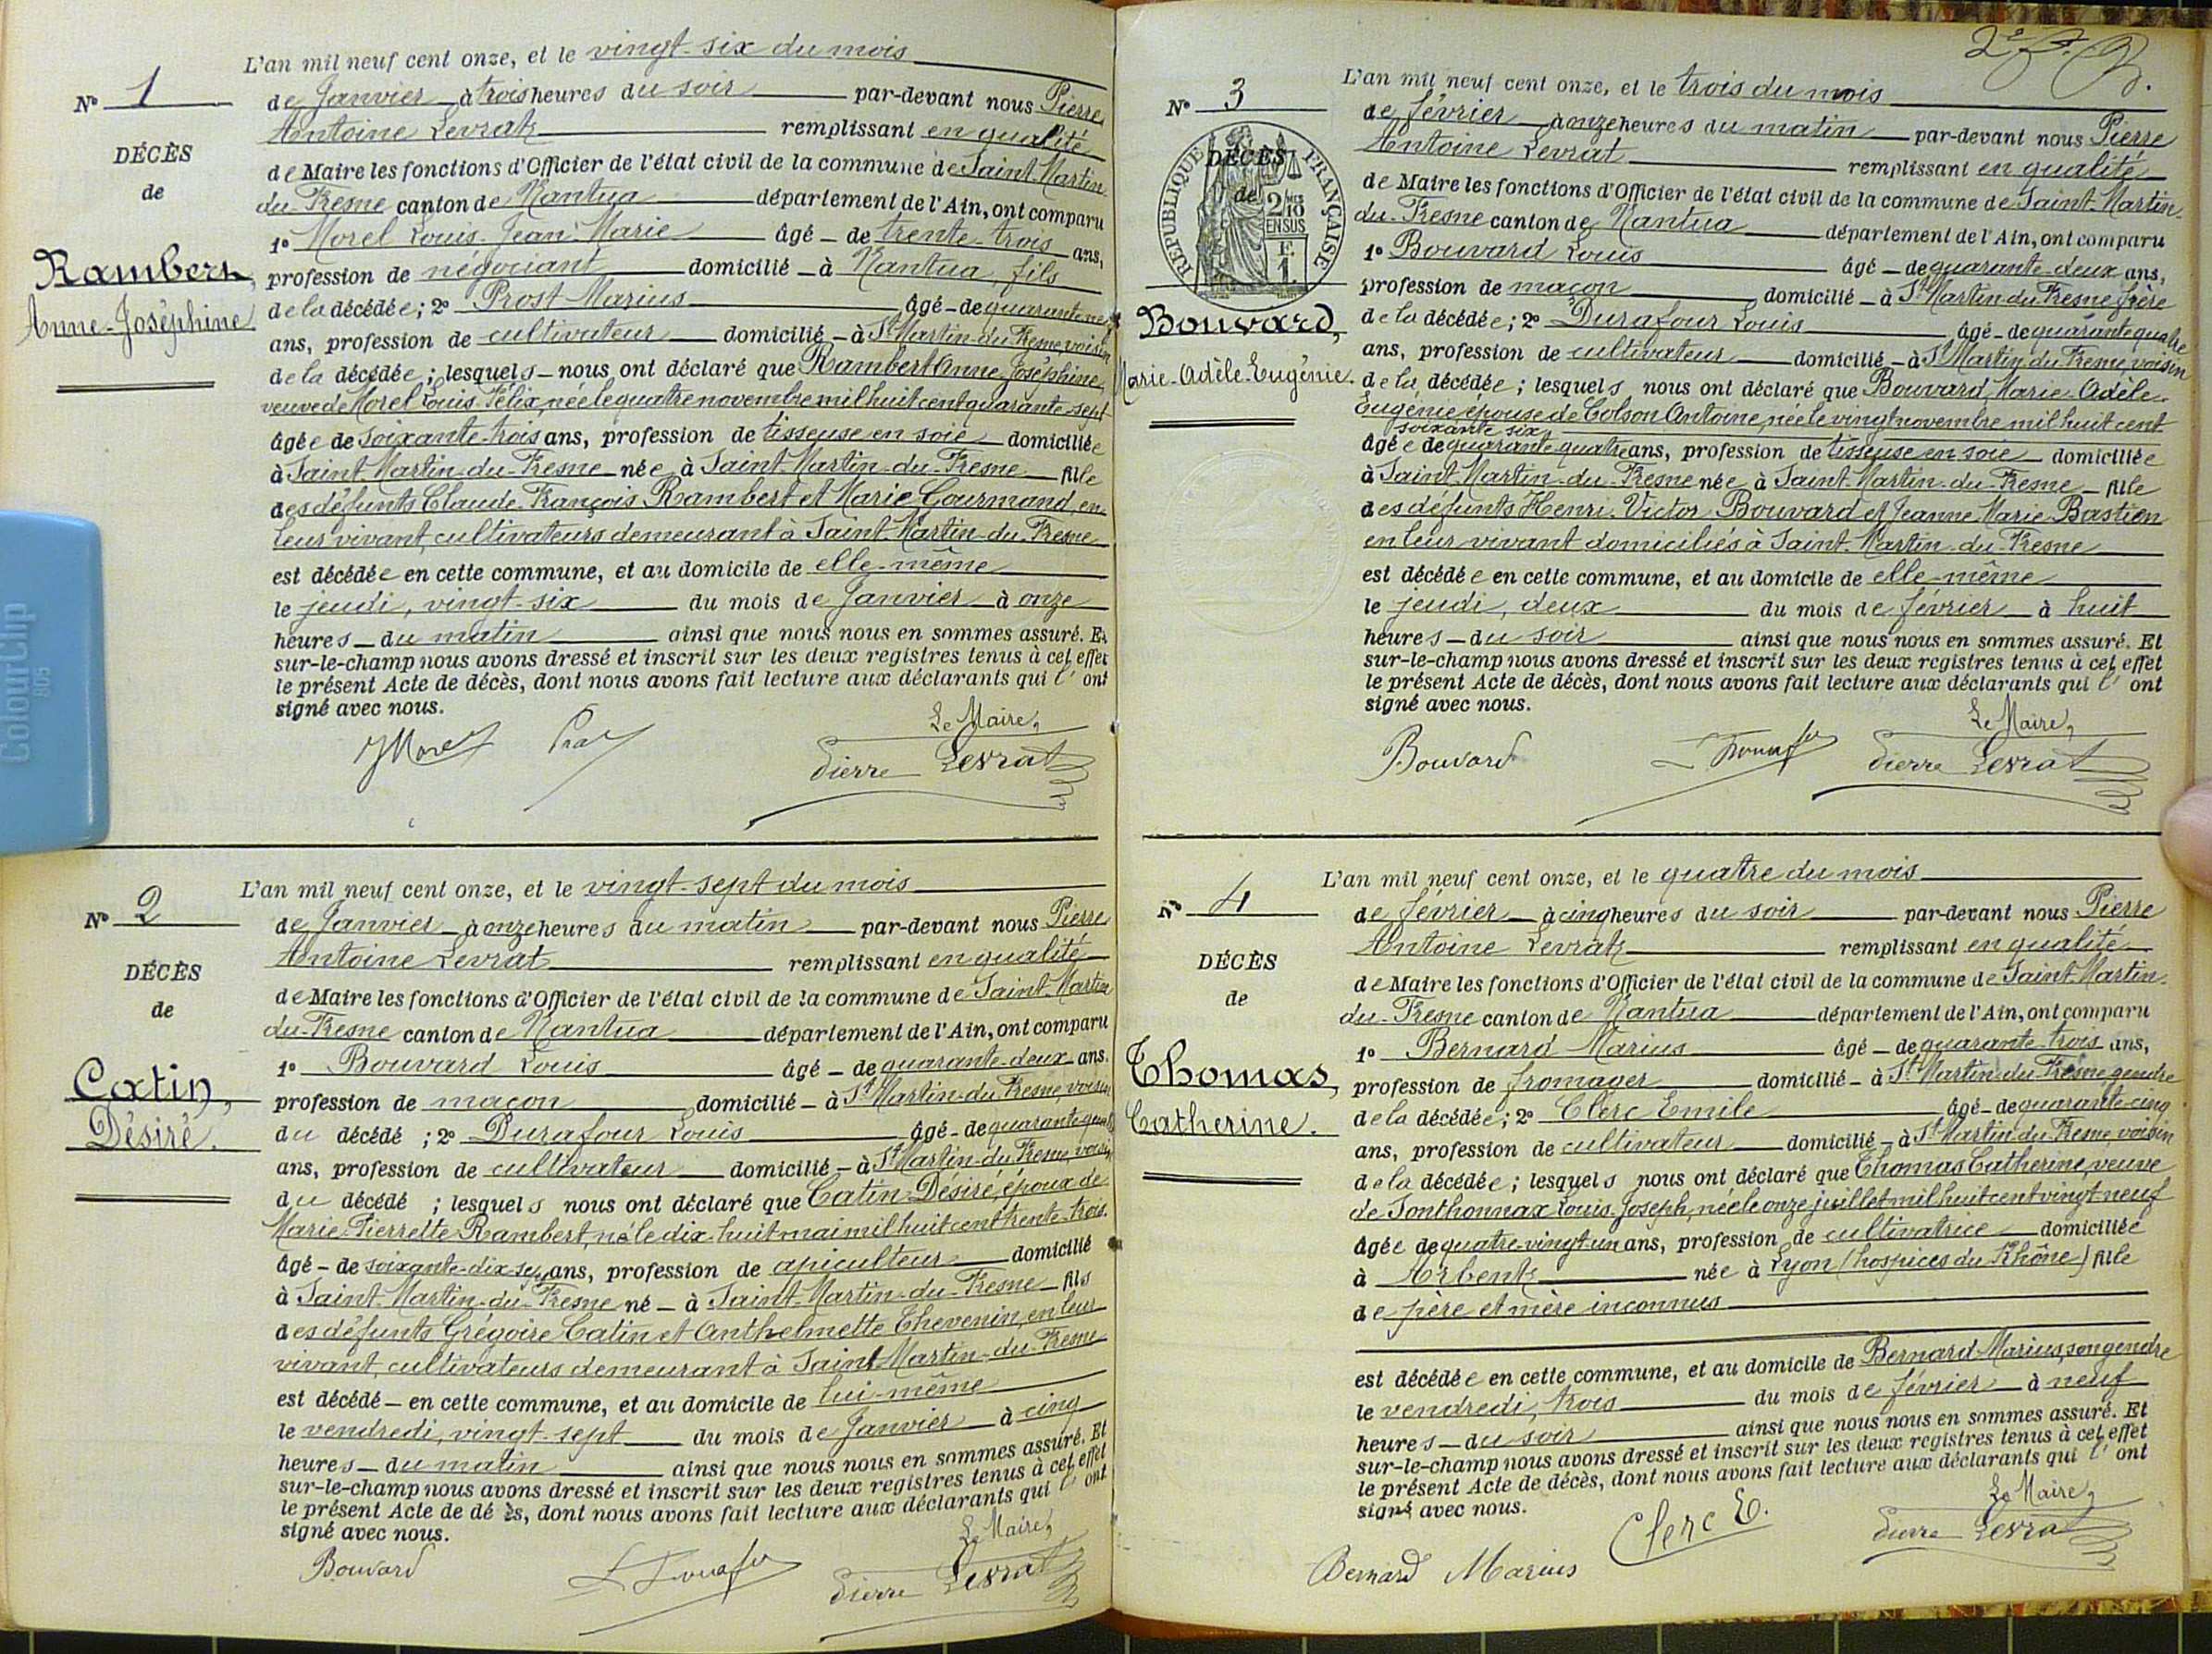 N° 1
DÉCÈS
de
Rambert,
Anne-Joséphine
L'an mil neuf cent onze, et le vingt-six du mois
de Janvier à trois heures du soir par-devant nous Pierre
Antoine Levrat remplissant en qualité
de Maire les fonctions d'Officier de l'état civil de la commune de Saint-Martin-
du-Fresne canton de Nantua département de l'Ain, ont comparu
1° Morel Louis-Jean-Marie âgé - de trente-trois ans,
profession de négociant domicilié - à Nantua, fils
de la décédée ; 2° Prost Marius âgé - de quarante
ans, profession de cultivateur domicilié - à St Martin-du-Fresne, voisin
de la décédée ; lesquels - nous ont déclaré que Rambert Anne-Joséphine,
veuve de Morel Louis-Félix, née le quatre novembre mil huit cent quarante-sept
âgée de soixante-trois ans, profession de tisseuse en soie domiciliée
à Saint-Martin-du-Fresne née à Saint-Martin-du-Fresne fille
des défunts Claude-François Rambert et Marie Gourmand, en
leur vivant, cultivateurs demeurant à Saint-Martin-du-Fresne
est décédée en cette commune, et au domicile de elle-même
le jeudi, vingt-six du mois de Janvier à onze
heures - du matin ainsi que nous nous en sommes assuré. Et
sur-le-champ nous avons dressé et inscrit sur les deux registres tenus à cet effet
le présent Acte de décès, dont nous avons fait lecture aux déclarants qui l'ont
signé avec nous.
Le Maire,
JMorel Prost Pierre Levrat
N° 2
DÉCÈS
de
Catin,
Désiré.
L'an mil neuf cent onze, et le vingt-sept du mois
de Janvier à onze heures du matin par-devant nous Pierre
Antoine Levrat remplissant en qualité
de Maire les fonctions d'Officier de l'état civil de la commune de Saint-Martin
du-Fresne canton de Nantua département de l'Ain, ont comparu
1° Bouvard Louis âgé - de quarante-deux ans.
profession de maçon domicilié - à St Martin-du-Fresne, voisin
du décédé ; 2° Durafour Louis âgé - de quarante quatre
ans, profession de cultivateur domicilié - à St Martin-du-Fresne, voisin
du décédé ; lesquels nous ont déclaré que Catin Désiré, époux de
Marie-Pierrette Rambert, né le dix-huit mai mil huit cent trente-trois.
âgé - de soixante-dix-sept ans, profession de apiculteur domicilié
à Saint-Martin-du-Fresne né - à Saint-Martin-du-Fresne fils
des défunts Grégoire Catin et Anthelmette Thevenin, en leur
vivant, cultivateurs demeurant à Saint Martin-du-Fresne
est décédé - en cette commune, et au domicile de lui-même
le vendredi, vingt-sept du mois de Janvier à cinq
heures - du matin ainsi que nous nous en sommes assuré. Et
sur-le-champ nous avons dressé et inscrit sur les deux registres tenus à cet effet
le présent Acte de dé ès, dont nous avons fait lecture aux déclarants qui l'ont
signé avec nous.
Le Maire,
Bouvard Pierre Levrat
2e f.
N° 3
DÉCÈS
de
RÉPUBLIQUE FRANÇAISE
2/10 EN SUS
E
1.
Bouvard,
Marie-Adèle-Eugénie.
L'an mil neuf cent onze, et le trois du mois
de février à onze heures du matin par-devant nous Pierre
Antoine Levrat remplissant en qualité
de Maire les fonctions d'Officier de l'état civil de la commune de Saint-Martin-
du-Fresne canton de Nantua département de l'Ain, ont comparu
1° Bouvard Louis âgé - de quarante-deux ans,
profession de maçon domicilié - à St Martin-du-Fresne frère
de la décédée ; 2° Durafour Louis âgé - de quarante quatre
ans, profession de cultivateur domicilié - à St Martin-du-Fresne, voisin
de la décédée ; lesquels nous ont déclaré que Bouvard Marie-Adèle-
Eugénie épouse de Colson Antoine, née le vingt novembre mil huit cent
soixante six
âgée de quarante-quatre ans, profession de tisseuse en soie domiciliée
à Saint-Martin-du-Fresne née à Saint-Martin-du-Fresne fille
des défunts Henri-Victor Bouvard et Jeanne Marie Bastien
en leur vivant domiciliés à Saint-Martin-du-Fresne
est décédée en cette commune, et au domicile de elle-même
le jeudi, deux du mois de février à huit
heures - du soir ainsi que nous nous en sommes assuré. Et
sur-le-champ nous avons dressé et inscrit sur les deux registres tenus à cet effet
le présent Acte de décès, dont nous avons fait lecture aux déclarants qui l'ont
signé avec nous.
Le Maire,
Bouvard Pierre Levrat
N° 4
DÉCÈS
de
Thomas,
Catherine.
L'an mil neuf cent onze, et le quatre du mois
de février à cinq heures du soir par-devant nous Pierre
Antoine Levrat remplissant en qualité
de Maire les fonctions d'Officier de l'état civil de la commune de Saint-Martin-
du-Fresne canton de Nantua département de l'Ain, ont comparu
1° Bernard Marius âgé - de quarante-trois ans,
profession de fromager domicilié - à St Martin-du-Fresne gendre
de la décédée ; 2° Clerc Emile âgé - de quarante-cinq
ans, profession de cultivateur domicilié - à St Martin-du-Fresne, voisin
de la décédée ; lesquels nous ont déclaré que Thomas Catherine, veuve
de Sonthonnax Louis-Joseph, née le onze juillet mil huit cent vingt neuf
âgée de quatre-vingt-un ans, profession de cultivatrice domiciliée
à Arbent née à Lyon (hospices du Rhône) fille
de père et mère inconnus
est décédée en cette commune, et au domicile de Bernard Marius, son gendre
le vendredi, trois du mois de février à neuf
heures - du soir ainsi que nous nous en sommes assuré. Et
sur-le-champ nous avons dressé et inscrit sur les deux registres tenus à cet effet
le présent Acte de décès, dont nous avons fait lecture aux déclarants qui l'ont
signé avec nous.
Le Maire,
Bernard Marius Clerc E. Pierre Levrat
ColourClip
805